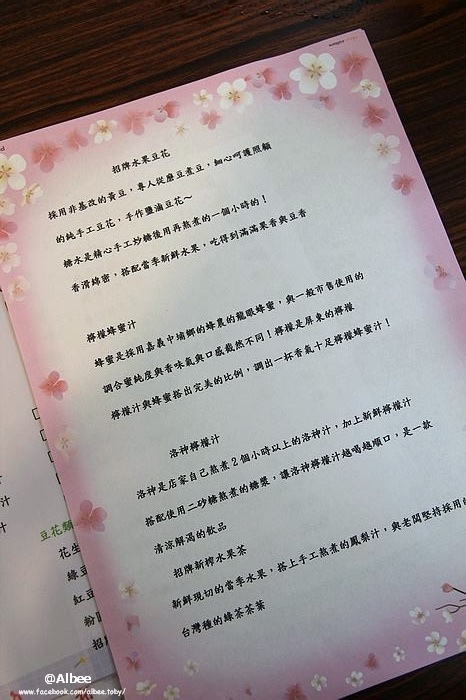 招牌水果豆花
採用非基改的黃豆，專人從磨豆煮豆，細心呵護照顧
的純手工豆花，手作鹽滷豆花～
糖水是精心手工炒糖後用再熬煮的一個小時的！
香滑綿密，搭配當季新鮮水果，吃得到滿滿果香與豆香
檸檬蜂蜜汁
蜂蜜是採用嘉義中埔鄉的蜂農的龍眼蜂蜜，與一般市售使用的
調合蜜純度與香味氣與口感截然不同！檸檬是屏東的檸檬
檸檬汁與蜂蜜搭出完美的比例，調出一杯香氣十足檸檬蜂蜜汁！
洛神檸檬汁
洛神是店家自己熬煮2個小時以上的洛神汁，加上新鮮檸檬汁
搭配使用二砂糖熬煮的糖漿，讓洛神檸檬汁越喝越順口，是一款
清涼解渴的飲品
招牌新榨水果茶
新鮮現切的當季水果，搭上手工熬煮的鳳梨汁，與老闆堅持採用
台灣種的綠茶茶葉
汁
汁
豆花類
花生
綠豆
紅豆
粉
招
@Albee
www.facebook.com/albee.toby/